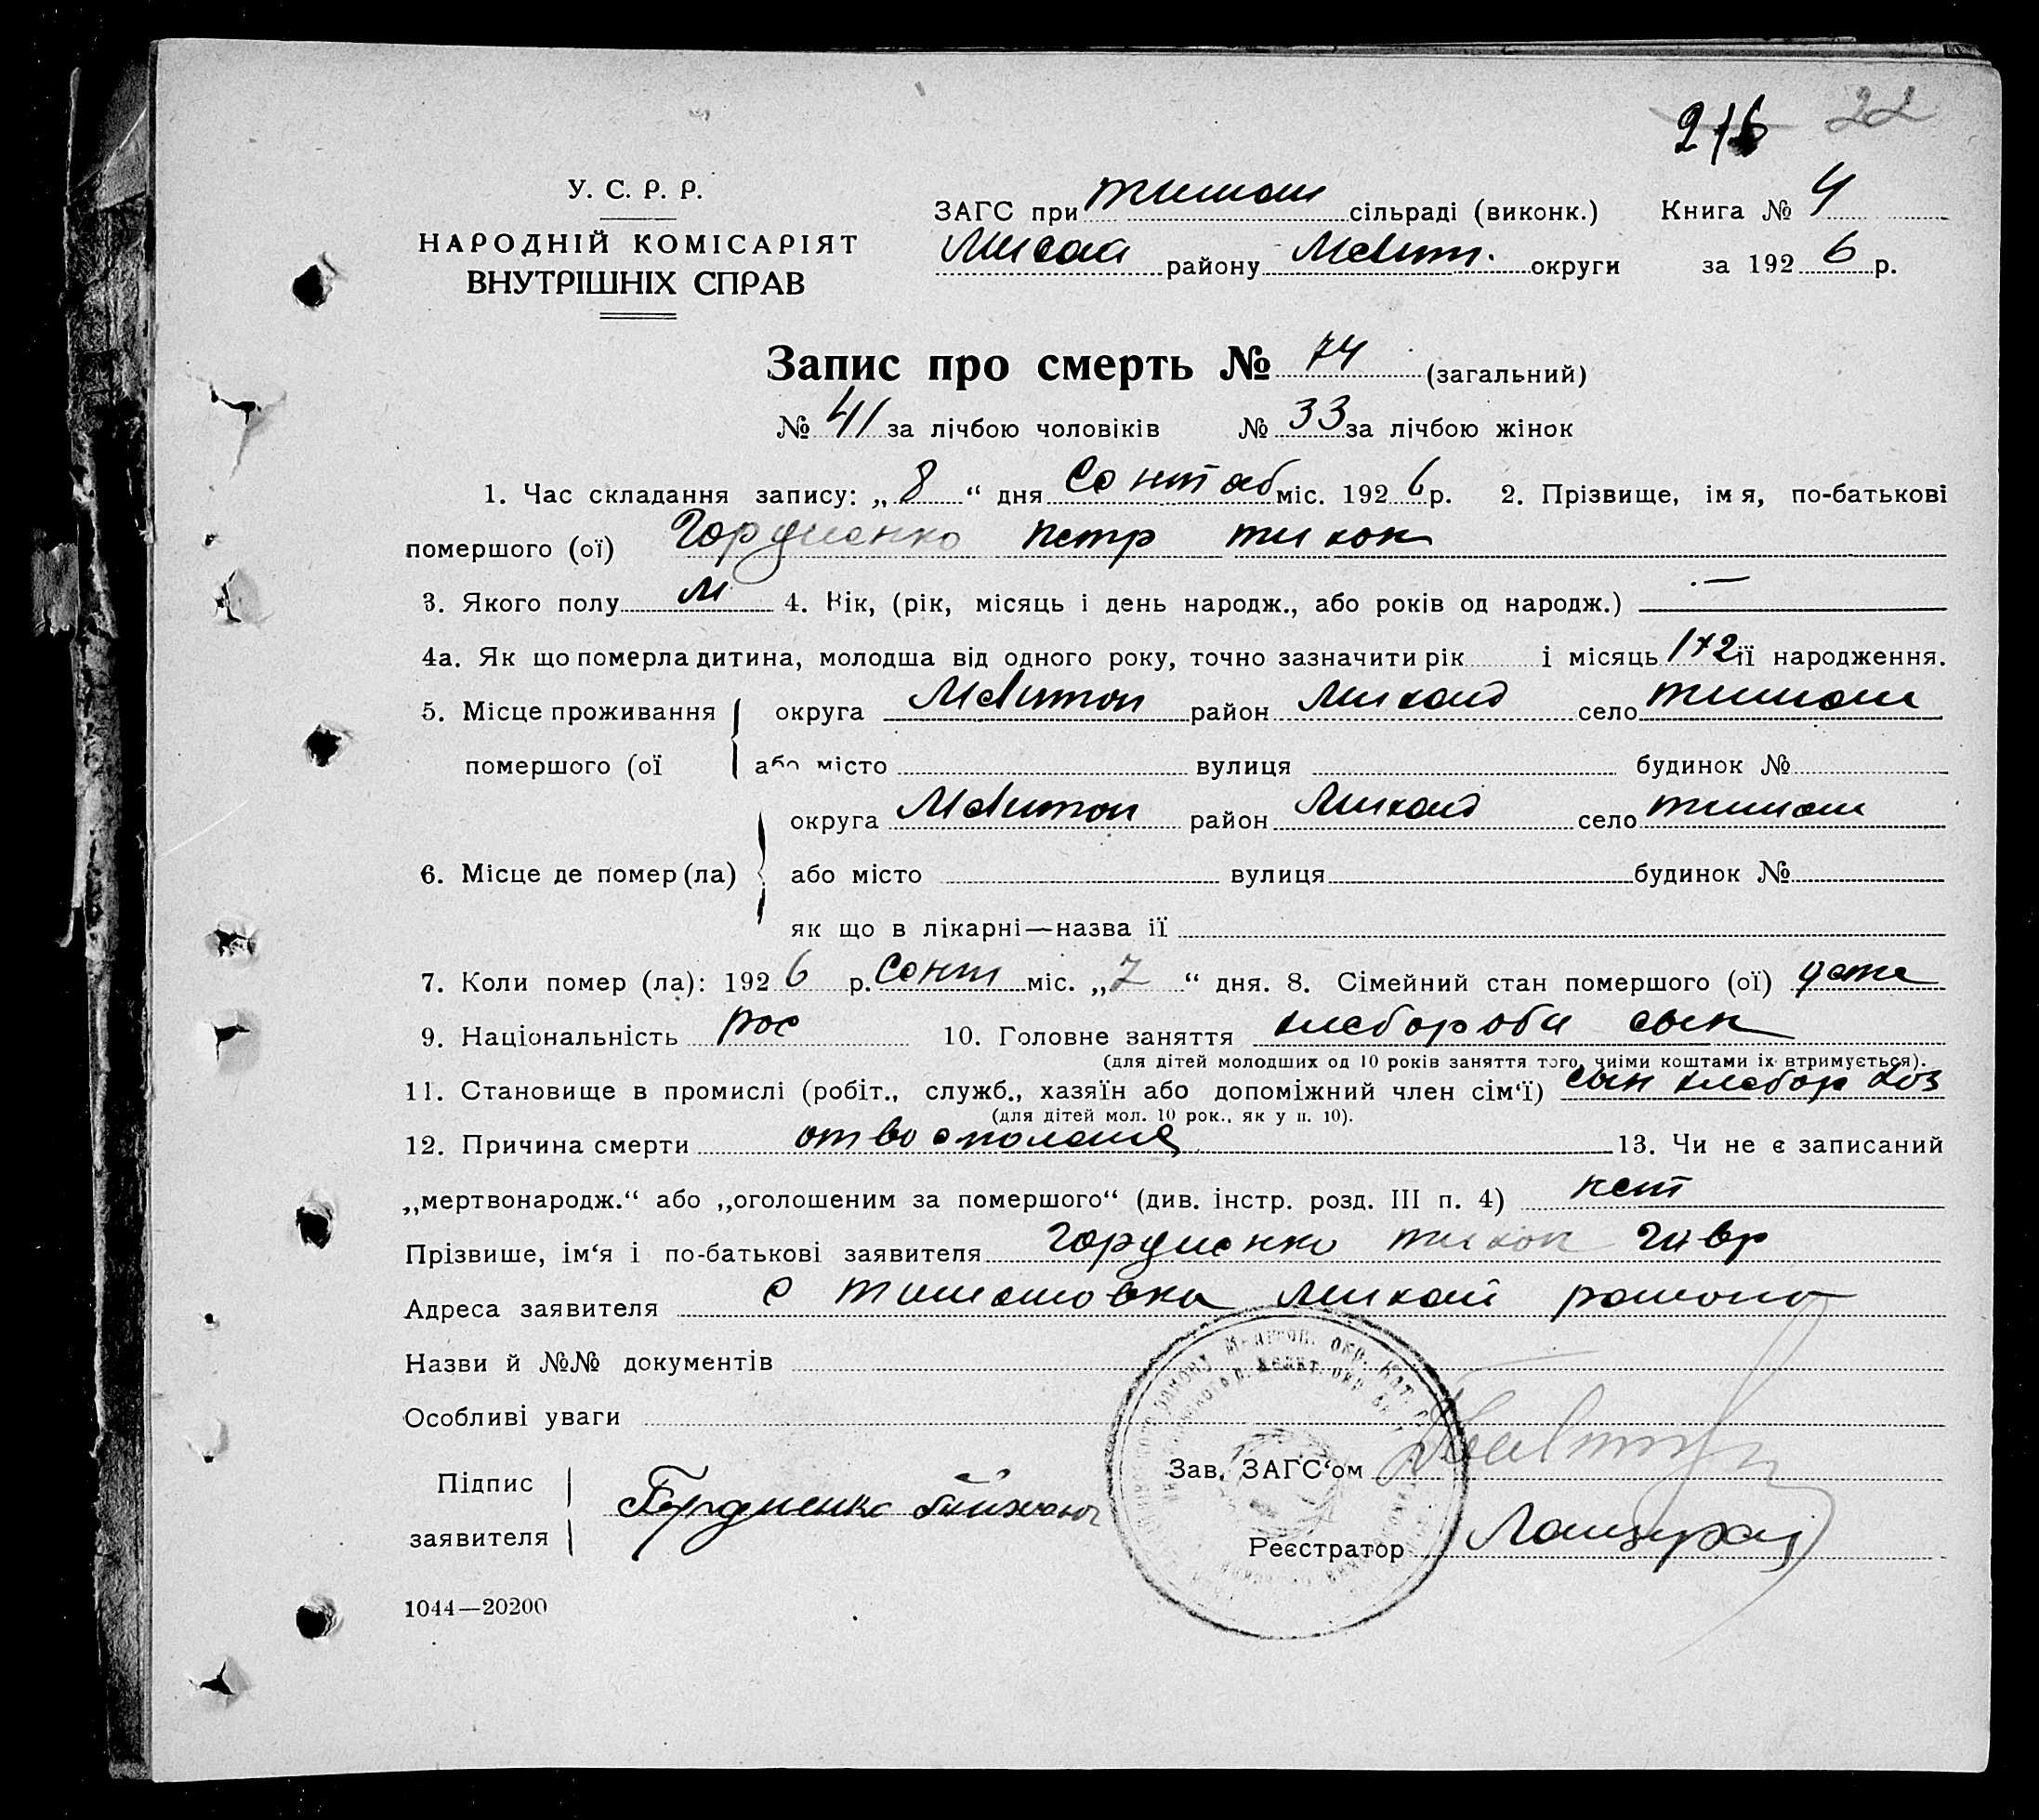 216 22
У. С. Р. Р.
НАРОДНІЙ КОМІСАРІЯТ
ВНУТРІШНІХ СПРАВ
ЗАГС при тимош сільраді (виконк.) Книга № 4
Михай району Мелит. округи за 1926 р.
Запис про смерть № 74 (загальний)
№ 41 за лічбою чоловіків № 33 за лічбою жінок
1. Час складання запису: „8“ дня Сентяб міс. 1926 р. 2. Прізвище, імя, по-батькові
помершого (ої) Гордиенко петр тихон
3. Якого полу м 4. Вік, (рік, місяць і день народж., або років од народж.) —
4а. Як що померла дитина, молодша від одного року, точно зазначити рік і місяць 1½ її народження.
5. Місце проживання округа Мелитоп район Михайл село тимош
помершого (ої або місто вулиця будинок №
округа Мелитоп район Михайл село тимош
6. Місце де помер (ла) або місто вулиця будинок №
як що в лікарні—назва ії
7. Коли помер (ла): 1926 р. Сент міс. „7“ дня. 8. Сімейний стан помершого (ої) дете
9. Національність рос 10. Головне заняття хлебороби сын
(для дітей молодших од 10 років заняття того, чиїми коштами їх втримується).
11. Становище в промислі (робіт., служб., хазяїн або допоміжний член сім‘ї) сын хлебор хоз
(для дітей мол. 10 рок., як у п. 10).
12. Причина смерти от воспаления 13. Чи не є записаний
„мертвонародж.“ або „оголошеним за помершого“ (див. інстр. розд. III п. 4) нет
Прізвише, ім‘я і по-батькові заявителя Гордиенко тихон гавр
Адреса заявителя с тимошовка михай района
Назви й №№ документів
Особливі уваги
Підпис заявителя Гордиенко Тихон
Зав. ЗАГС‘ом
Реєстратор
1044—20200